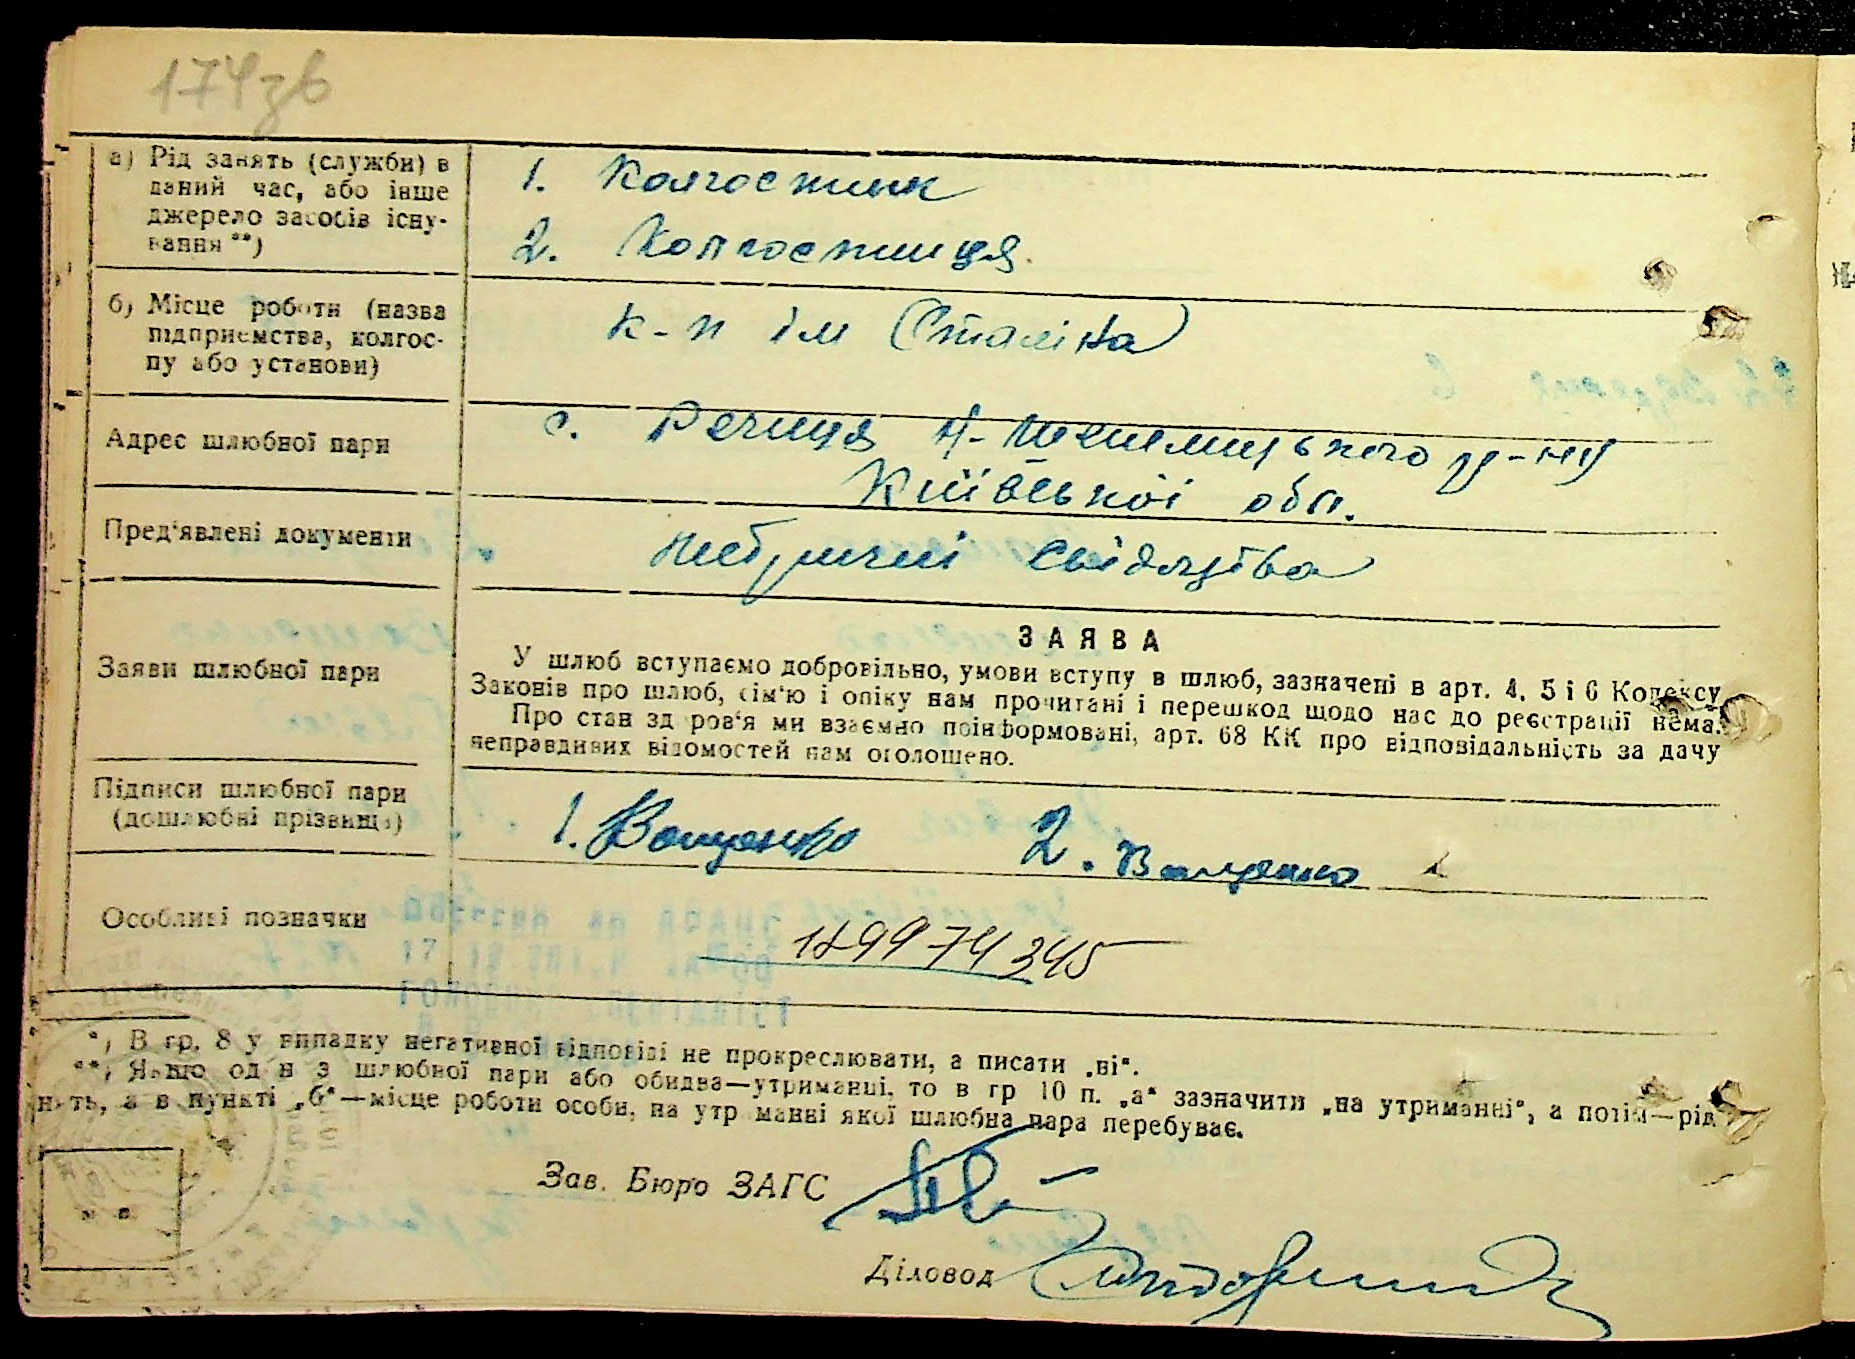 174зв
а) Рід занять (служби) в
даний час, або інше
джерело засобів існу-
вання **)
1. Колгоспник
2. Колгоспниця.
б) Місце роботи (назва
підприємства, колгос-
пу або установи)
к-п ім Сталіна
Адрес шлюбної пари
с. Речиця Н-Шепелицького р-ну
Київської обл.
Пред'явлені документи
Заяви шлюбної пари
ЗАЯВА
У шлюб вступаємо добровільно, умови вступу в шлюб, зазначені в арт. 4, 5 і 6 Кодексу
Законів про шлюб, сім'ю і опіку нам прочитані і перешкод щодо нас до реєстрації нема.
Про стан здоров'я ми взаємно поінформовані, арт. 68 КК про відповідальність за дачу
неправдивих відомостей нам оголошено.
Підписи шлюбної пари
(дошлюбні прізвища)
1. Ващенко 2. Ващенко
Особливі позначки
*) В гр. 8 у випадку негативної відповіді не прокреслювати, а писати „ні“.
**) Якщо один з шлюбної пари або обидва—утриманці, то в гр 10 п. „а“ зазначити „на утриманні“, а потім—рід
нять, а в пункті „б“—місце роботи особи, на утриманні якої шлюбна пара перебуває.
Зав. Бюро ЗАГС
Діловод